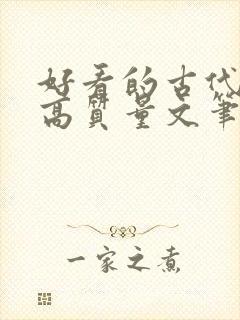 好看的古代
高质量文笔
一家之煮